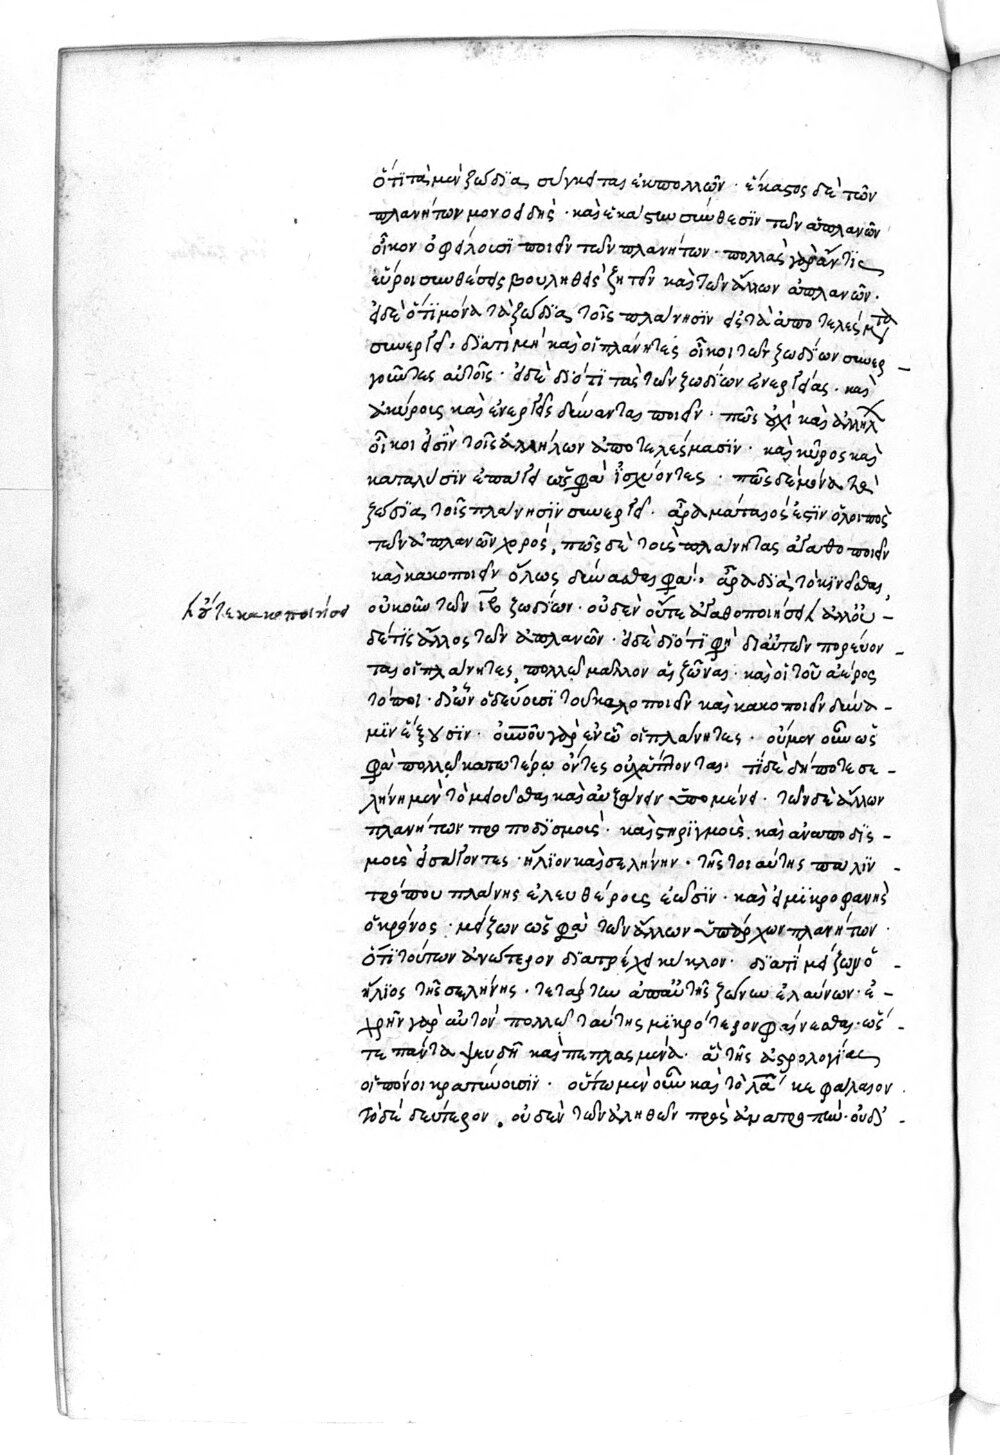 ὅτι τὰ μὲν ζώδια, σύγκειται ἐκ πολλῶν· ἕκαστος δὲ τῶν
πλανήτων μονοειδής· καὶ ἑκάστου σύνθεσιν τῶν ἀπλανῶν
οἶκον ὀφείλουσι ποιεῖν τῶν πλανήτων· πολλὰς γὰρ ἄν τις
εὕροι συνθέσεις βουληθεὶς ζητεῖν καὶ τῶν ἄλλων ἀπλανῶν·
εἰ δὲ ὅτι μόνα τὰ ζώδια τοῖς πλάνησιν εἰς τὰ ἀποτελέσματα
συνεργεῖ· διατί μὴ καὶ οἱ πλάνητες οἶκοι τῶν ζωδίων συνερ-
γοῦντες αὐτοῖς· εἰ δὲ διότι τὰς τῶν ζωδίων ἐνεργείας· καὶ
ἀκύρους καὶ ἐνεργεῖς δύνανται ποιεῖν· πῶς οὐχὶ καὶ ἀλλήλων
οἶκοί εἰσιν τοῖς ἀλλήλων ἀποτελέσμασιν· καὶ κῦρος καὶ
κατάλυσιν ἐπάγειν ὥς φασιν ἰσχύοντες· πῶς δὲ μόνα τὰ
ζώδια τοῖς πλάνησιν συνεργεῖ· ἆρα μάταιός ἐστιν ὁ λοιπὸς
τῶν ἀπλανῶν χορός, πῶς δὲ τοὺς πλάνητας ἀγαθοποιεῖν
καὶ κακοποιεῖν ὅλως δύνασθαι φασίν· ἆρα διὰ τὸ κινεῖσθαι,
οὐκοῦν τῶν ιβ ζωδίων· οὐδὲν οὔτε ἀγαθοποιήσει ἀλλ' οὐ-
οὔτε κακοποιήσει
δέ τις ἄλλος τῶν ἀπλανῶν· εἰ δὲ διότι φησὶ δι' αὐτῶν πορεύον-
ται οἱ πλάνητες, πολλῷ μᾶλλον αἱ ζῶναι· καὶ οἱ τοῦ ἀέρος
τόποι· δι' ὧν ὁδεύουσι τοῦ καλοποιεῖν καὶ κακοποιεῖν δύνα-
μιν ἕξουσιν· ὅπου γὰρ ἐν ᾧ οἱ πλάνητες· οὐ μὴν οὖν ὥς
φασι πολλῷ κατωτέρω ὄντες οὐχ ἅπτονται· τί δὲ δήποτε σε-
λήνη μὲν τὸ μειοῦσθαι καὶ αὐξάνειν ὑπομένει· τῶν δὲ ἄλλων
πλανήτων προποδισμοὺς· καὶ στηριγμοὺς καὶ ἀναποδισ-
μοὺς εἰσάγοντες· ἥλιον καὶ σελήνην· τῆς τοιαύτης πάλιν
τρόπου πλάνης ἐλευθέρους ἐῶσιν· καὶ εἰ μικροφανὴς
ὁ κρόνος· μείζων ὥς φασι τῶν ἄλλων ὑπάρχων πλανήτων·
ὅτι τούτων ἀνώτερον διατρέχει κύκλον· διατί μείζων ὁ
ἥλιος τῆς σελήνης· τετάρτην ἀπ' αὐτῆς ζώνην ἐλαύνων· ἐ-
χρῆν γὰρ αὐτὸν πολλῷ ταύτης μικρότερον φαίνεσθαι· ὥσ-
τε πάντα ψευδῆ καὶ πεπλασμένα· ἃ τῆς ἀστρολογίας
οἱ πόνοι κρατύνουσιν· οὕτω μὲν οὖν καὶ τὸ α κεφάλαιον·
τὸ δὲ δεύτερον· οὐδὲν τῶν ἀληθῶν πρὸς ἀνατροπὴν· οὐδ-